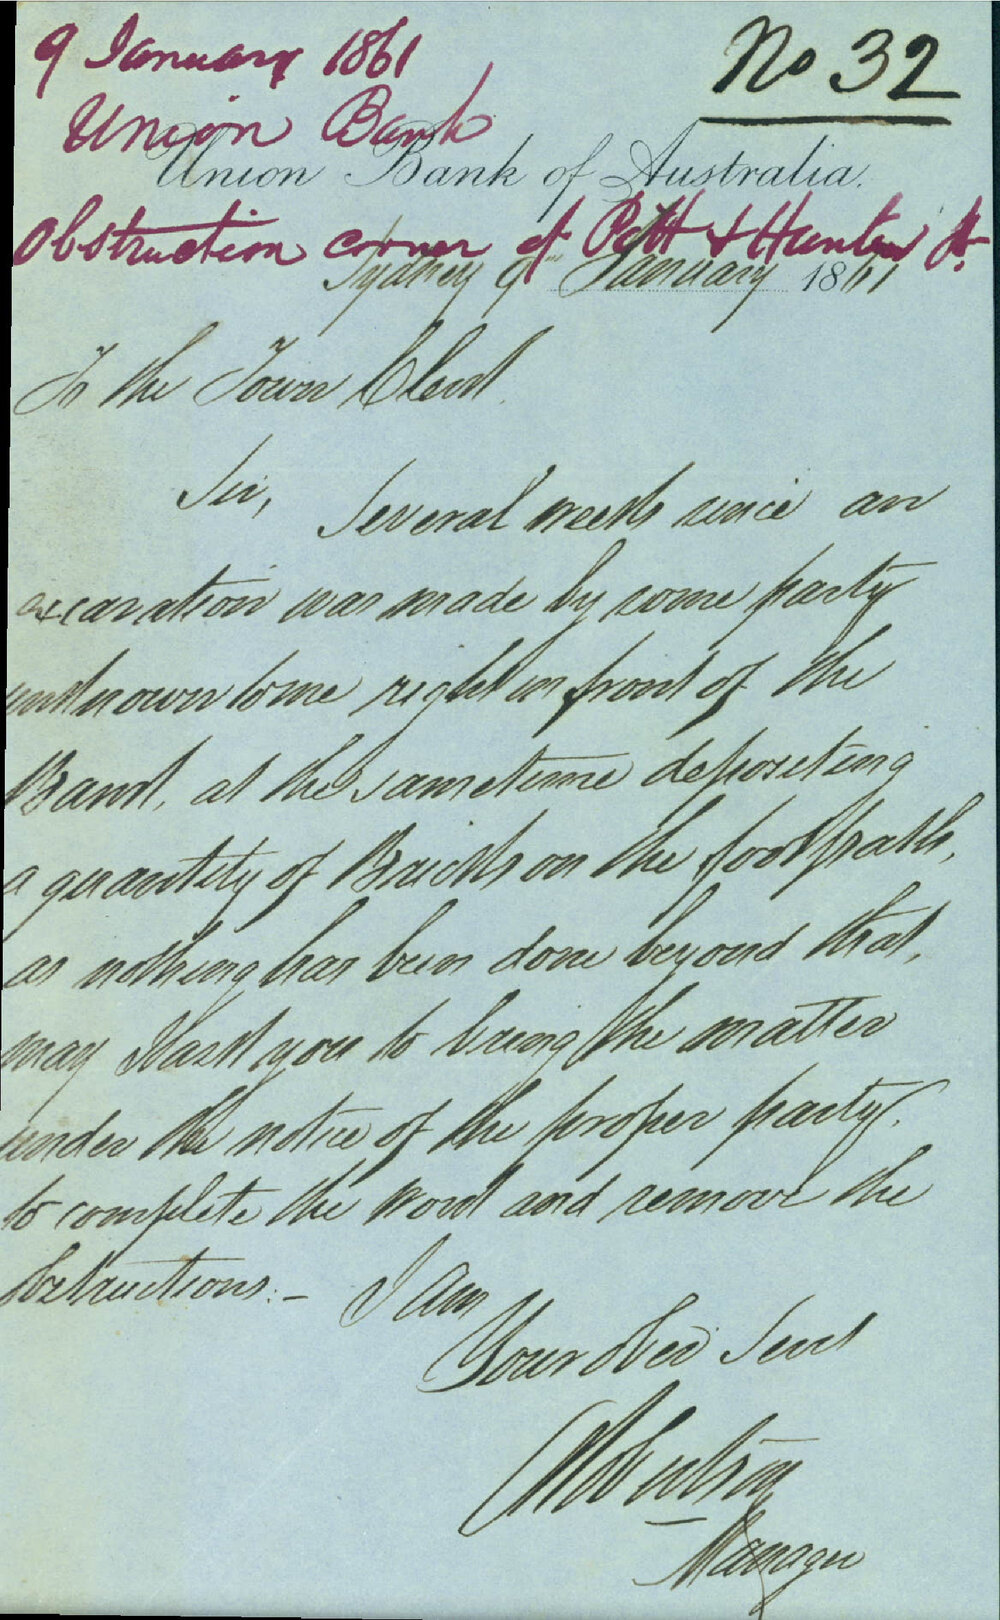 9 January 1861
No 32
Union Bank
Union Bank of Australia.
Obstruction corner of Pitt & Hunter St.
Sydney 9th January 1861
To the Town Clerk.
Sir, Several weeks since an
excavation was made by some party
unknown to me right in front of the
Bank, at the same time depositing
a quantity of Bricks on the footpath,
as nothing has been done beyond that,
may I ask you to bring the matter
under the notice of the proper party,
to complete the work and remove the
obstructions:–  I am
Your obed Servt
Robertson
Manager